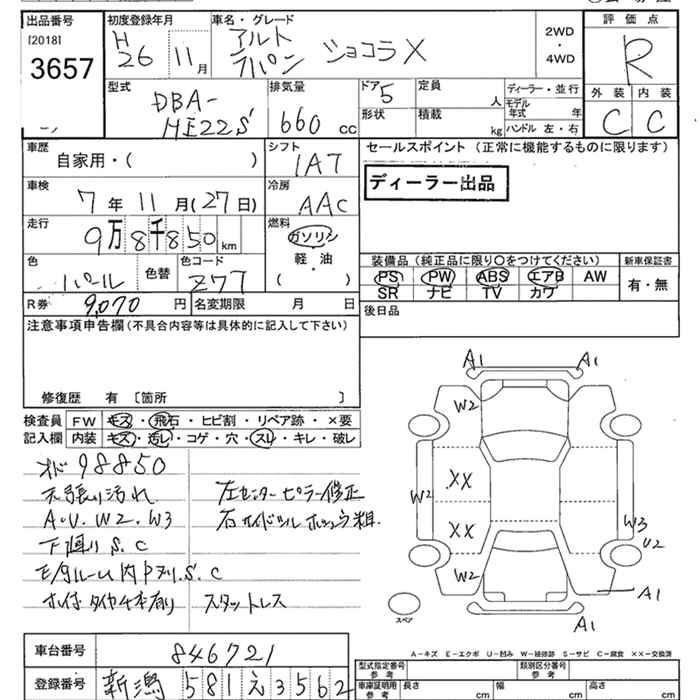 出品番号 初度登録年月 車名・グレード 評価点
[2018] H アルト 2WD
3657 26 11月 ラパン ショコラX ・ 4WD R
型式 排気量 ドア 5 定員 人 ディーラー・並行 外装 内装
DBA- 形状 積載 kg モデル年式 年
HE22S 660 cc ハンドル 左・右 C C
車歴 シフト セールスポイント (正常に機能するものに限ります)
自家用・( ) IA7
車検 冷房 ディーラー出品
7年 11月(27日) AAC
走行 燃料
9万8千850 km ガソリン
軽・油
( )
色 色替 色コード 装備品 (純正品に限り○をつけてください) 新車保証書
パール Z7T PS PW ABS エアB AW 有・無
SR ナビ TV カワ
R券 9,070 円 名変期限 月 日 後日品
注意事項申告欄(不具合内容等は具体的に記入して下さい)
修復歴 有 〔箇所 〕
検査員 FW キズ・飛石・ヒビ割・リペア跡・×要
記入欄 内装 キズ・汚レ・コゲ・穴・スレ・キレ・破レ
メド 98850
天張り汚れ 左センターピラー修正
A・U.W2.W3
下廻りS.C
S.C
タイヤ4本有り スタットレス
A1 A1
W2
XX
W2 XX W3
U2
W2
A1
A1
スペア
A-キズ E-エクボ U-凹み W-補修跡 S-サビ C-腐食 ××-交換済
車台番号 846721
型式指定番号 参考 類別区分番号 参考
登録番号 新潟 581 え 3562
車庫証明用 参考 長さ cm 幅 cm 高さ cm